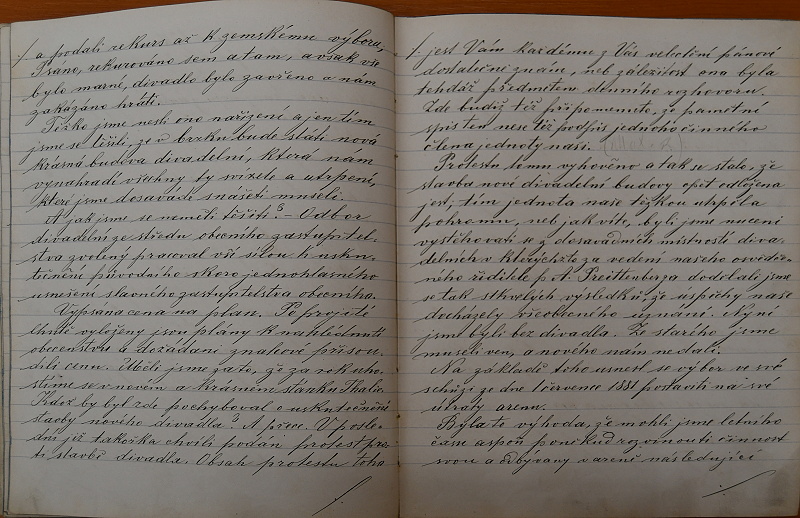 a podali rekurs až k zemskému výboru,
Psáno, rekurováno sem a tam, avšak vše
bylo marné, divadlo bylo zavřeno a nám
zakázáno hráti.
Těžko jsme nesli ono nařízení a jen tím
jsme se těšili, že v brzku bude státi nová
krásná budova divadelní, která nám
vynahradí všechny ty svízele a utrpení,
které jsme dosaváde snášeti museli.
A jak jsme se neměli těšiti? – Odbor
divadelní ze středu obecního zastupitel-
stva zvolený pracoval vší silou k usku-
tečnění původního skoro jednohlasného
usnešení slavného zastupitelstva obecního.
Vypsána cena na plán. Po projití
lhůt vyloženy jsou plány k nahlédnutí
obecenstvu a dožádaní znalcové přisou-
dili cenu. Měli jsme za to, že za rok uho-
stíme se v novém a krásném stánku Thalie.
Kdož by byl zde pochyboval o uskutečnění
stavby nového divadla? A přece. V posle-
dní již takořka chvíli podán protest pro-
ti stavbě divadla. Obsah protestu toho
jest Vám každému z Vás velectění pánové
dostatečně znám, neb záležitost ona byla
tehdáž předmětem denního rozhovoru.
Zde budiž též připomenuto, že pamětní
spis ten nese též podpis jednoho činného
člena jednoty naší.
Protestu tomu vyhověno a tak se stalo, že
stavba nové divadelní budovy opět odložena
jest; tím jednota naše těžkou utrpěla
pohromu, neb jak víte, byli jsme nuceni
vystěhovati se z dosavádních místností diva-
delních v kterýchžto za vedení našeho osvědče-
ného ředitele p. A. Preittenberga dodělali jsme
se tak skvělých výsledků, že úspěchy naše
docházely všeobecného uznání. Nyní
jsme byli bez divadla. Ze starého jsme
museli ven, a nového nám nedali.
Na základě toho usnesl se výbor ve své
schůzi ze dne 1 července 1881 postaviti na své
útraty arenu.
Byla to výhoda, že mohli jsme letního
času aspoň poněkud rozvinouti činnost
svou a odbývany v areně následující